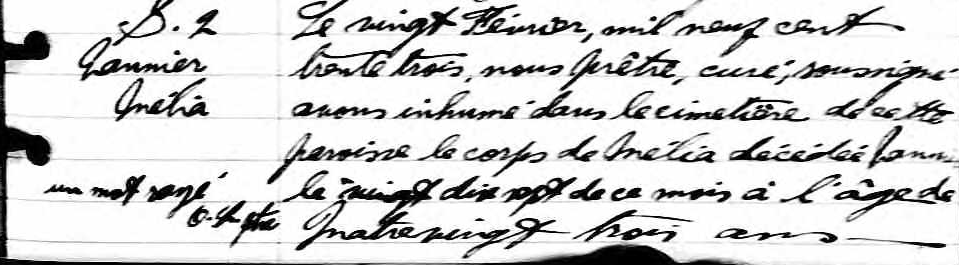 S. 2
Lannier
Mélia
un mot rayé
Le vingt Février, mil neuf cent
trente trois, nous prêtre, curé, soussigné
avons inhumé dans le cimetière de cette
paroisse le corps de Mélia décédée
le vingt dix sept de ce mois à l'âge de
Quatre vingt trois ans